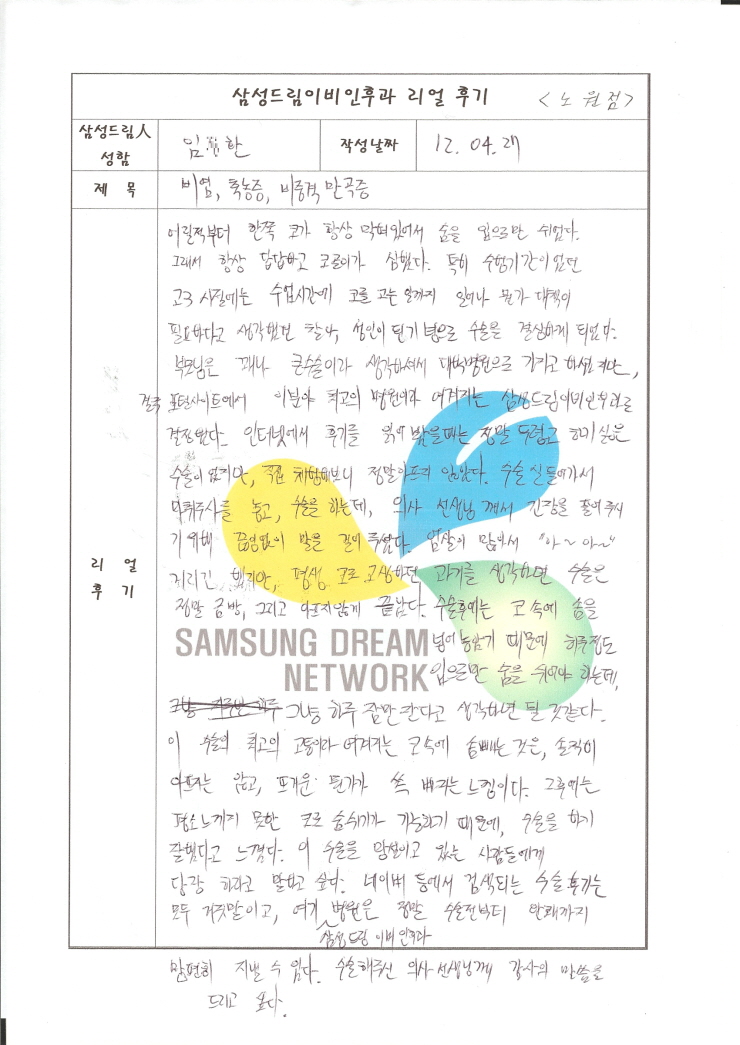 삼성드림이비인후과 리얼 후기 <노원점>
삼성드림人 성함
임 한
작성날짜
12. 04. 27
제 목
비염, 축농증, 비중격만곡증
리 얼
후 기
어릴적부터 한쪽 코가 항상 막혀있어서 숨을 입으로만 쉬었다.
그래서 항상 답답하고 코골이가 심했다. 특히 수험기간이었던
고3 시절에는 수업시간에 코를 고는 일까지 일어나 뭔가 대책이
필요하다고 생각했던 찰나, 성인이 된기념으로 수술을 결심하게 되었다.
부모님은 꽤나 큰수술이라 생각하셔서 대학병원으로 가자고 하셨지만,
결국 포털사이트에서 이분야 최고의 병원이라 여겨지는 삼성드림이비인후과로
결정했다. 인터넷에서 후기를 읽어 봤을때는 정말 두렵고 하기싫은
수술이었지만, 직접 체험해보니 정말아프지 않았다. 수술실 들어가서
마취주사를 놓고, 수술을 하는데, 의사 선생님께서 긴장을 풀어주시
기 위해 끊임없이 말을 걸어주셨다. 엄살이 많아서 "아~ 아~"
거리긴 했지만, 평생 코로 고생하던 과거를 생각하면 수술은
정말 금방, 그리고 아프지않게 끝났다. 수술후에는 코 속에 솜을
넣어놓았기 때문에 하루정도
입으로만 숨을 쉬어야 하는데,
그냥 하루 잠만 잔다고 생각하면 될 것같다.
이 수술의 최고의 고통이라 여겨지는 코속에 솜빼는 것은, 솔직히
아프지는 않고, 뜨거운 뭔가가 쏙 빠지는 느낌이다. 그후에는
평소느끼지 못한 코로 숨쉬기가 가능하기 때문에, 수술을 하기
잘했다고 느꼈다. 이 수술을 망설이고 있는 사람들에게
당장 하라고 말하고 싶다. 네이버 등에서 검색되는 수술후기는
모두 거짓말이고, 여기 병원은 정말 수술전부터 완쾌까지
삼성드림 이비인후과
맘편히 지낼 수 있다. 수술해주신 의사 선생님께 감사의 말씀을
드리고 싶다.
SAMSUNG DREAM
NETWORK